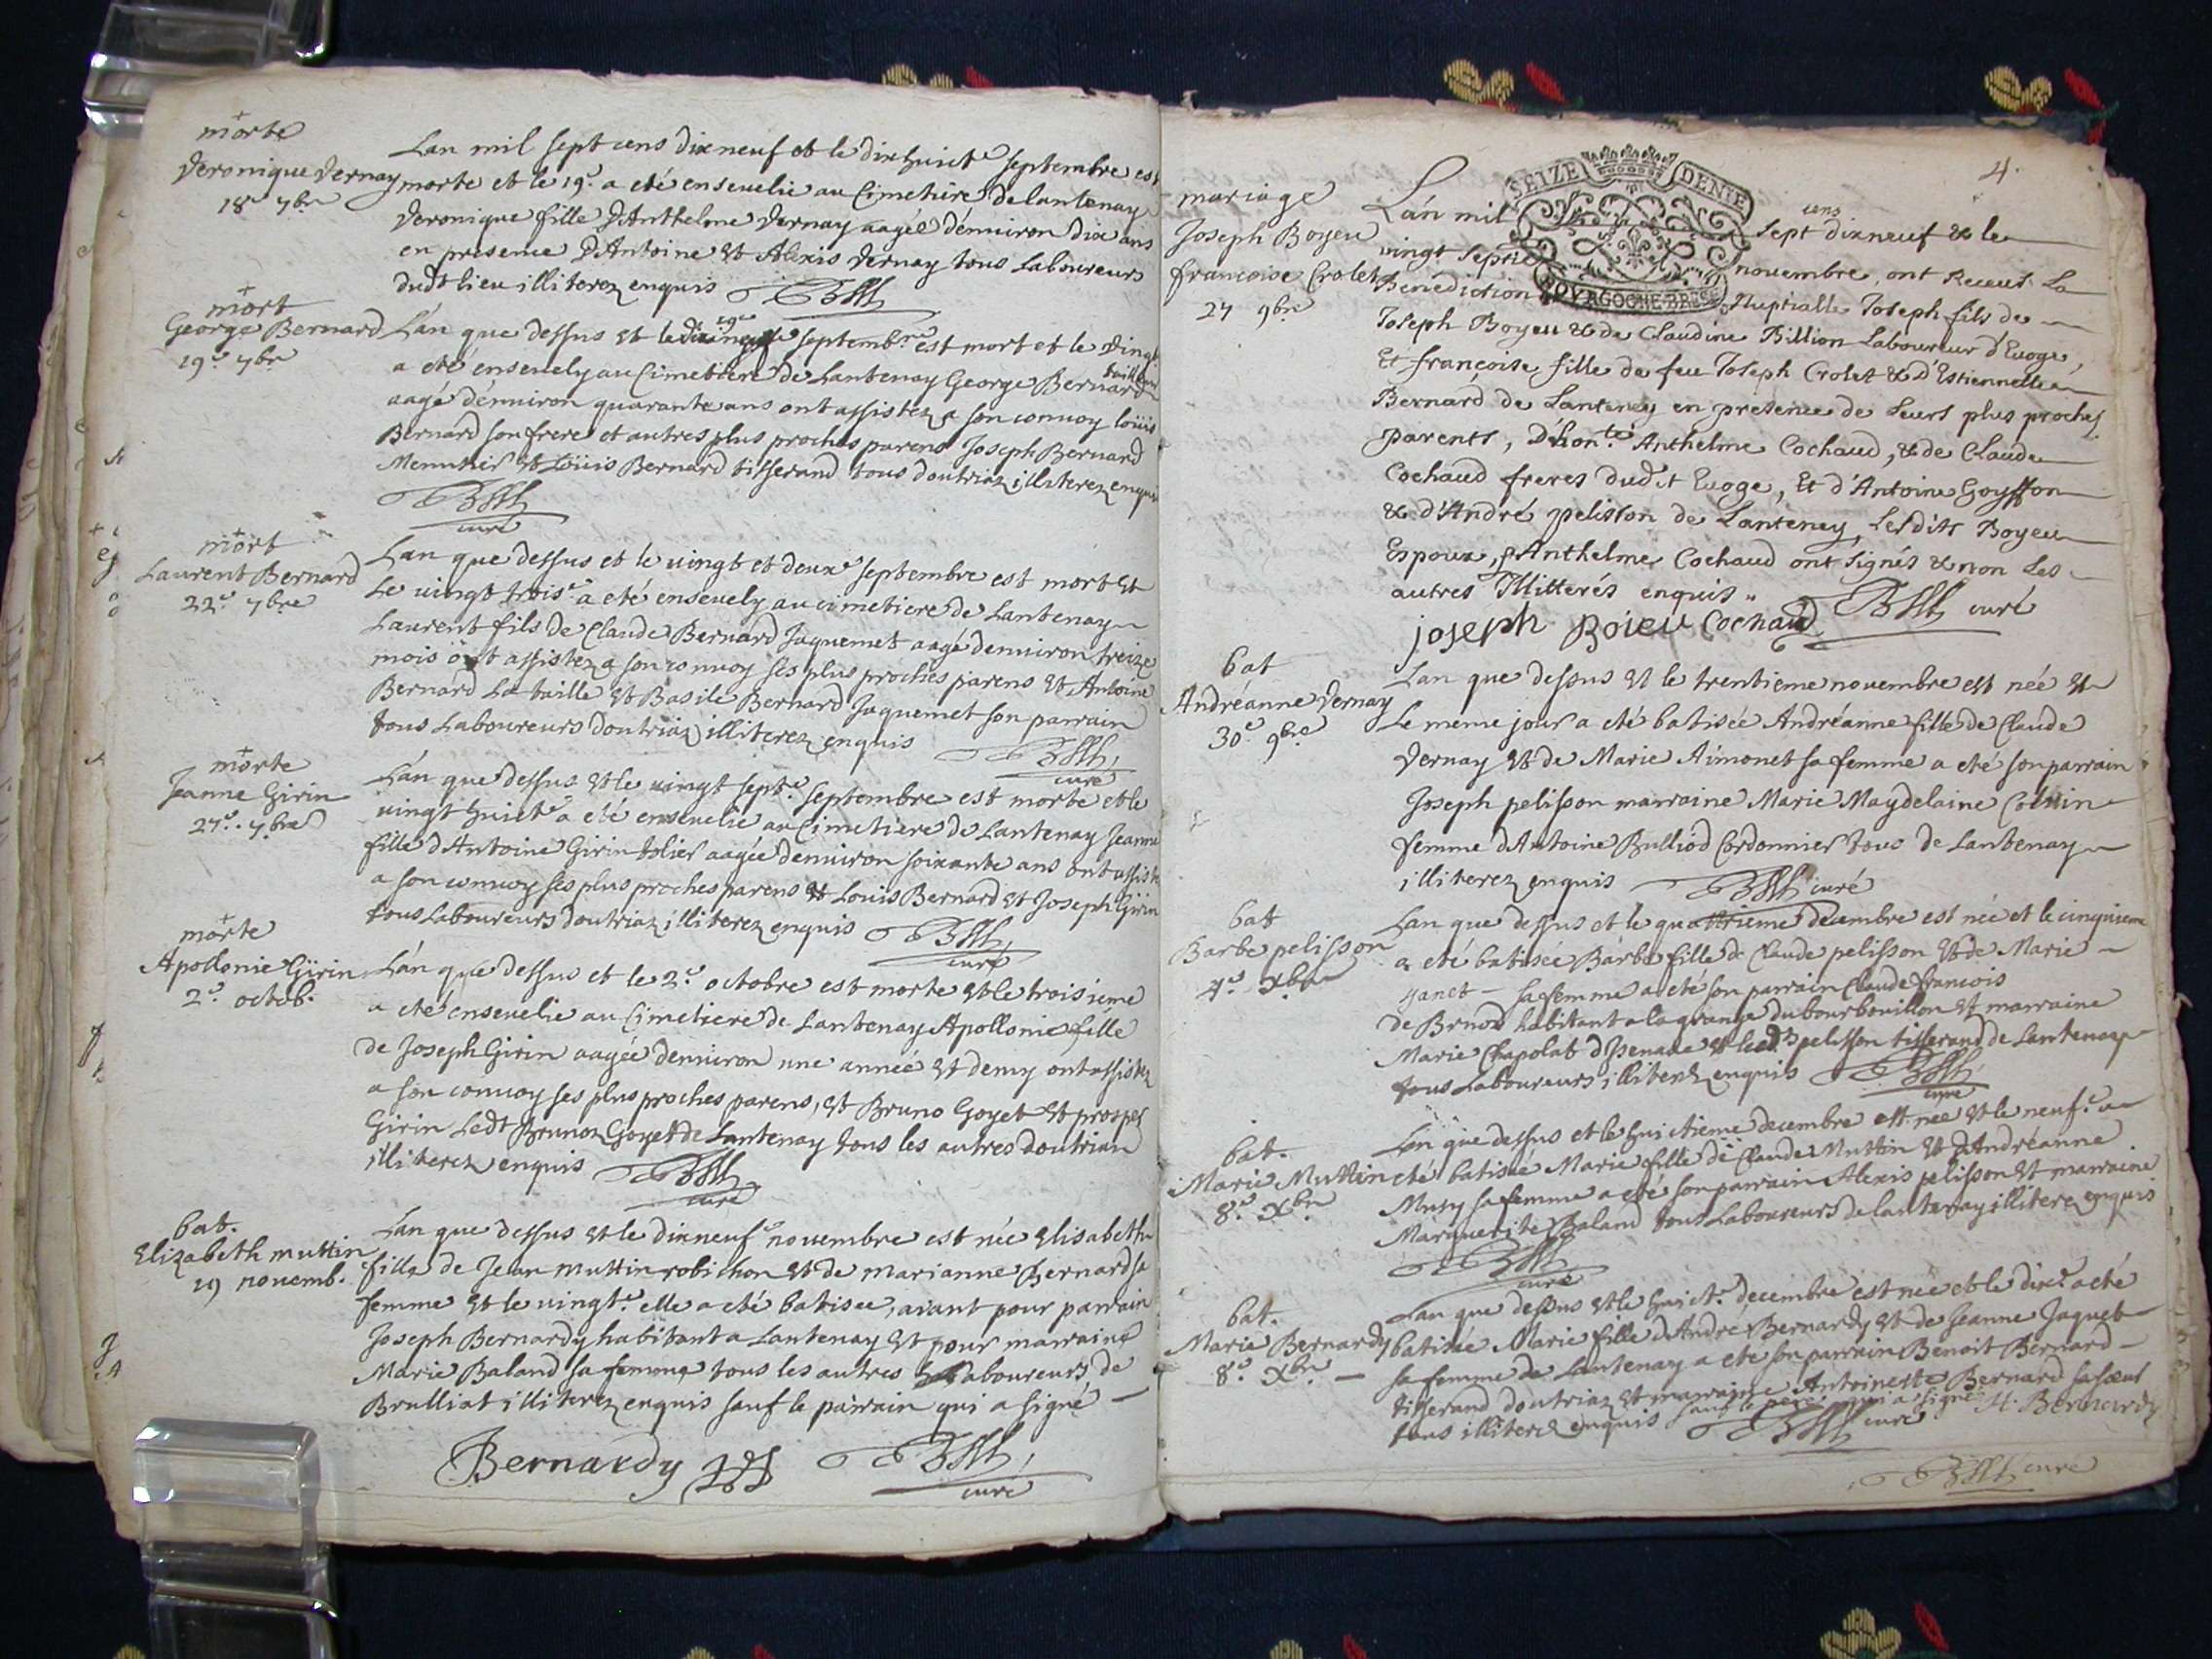 morte
Veronique Vernay
18e 7bre
Lan mil sept cens dix neuf et le dix huicte septembre est
morte et le 19e a eté enseuelie au Cimetiere de lantenay
Veronique fille D'Anthelme Vernay aagée d'enuiron dix ans
en presence D'Antoine et Alexis Vernay tous Laboureurs
dudt lieu illiterez enquis
mort
George Bernard
19e 7bre
Lán que dessus et le 19e septembre est mort et le vingt
a eté enseuely au Cimetiere de Lantenay George Bernard tailleur
aagé d'enuiron quarante ans ont assistez a son conuoy loüis
Bernard son frere et autres plus proches parens Joseph Bernard
Meunier et Loüis Bernard tisserand tous doutriaz illiterez enquis
curé
mort
Laurent Bernard
22e 7bre
Lan que dessus et le uingt et deuxe septembre est mort et
Le uingt troise a eté enseuely au cimetiere de Lantenay
Laurent fils de Claude Bernard Jaquemet aagé denuiron treize
mois ont assistez a son conuoy ses plus proches parens et Antoine
Bernard La taille et Basile Bernard Jaquemet son parrain
tous Laboureurs doutriaz illiterez enquis
curé
morte
Jeanne Girin
27e 7bre
Lán que dessus et le uingt septe septembre est morte et le
uingt huicte a eté enseuelie au Cimetiere de Lantenay Jeanne
fille d'Antoine Girin tolier aagée denuiron soixante ans ont assistez
a son conuoy ses plus proches parens et Louis Bernard et Joseph Girin
tous Laboureurs doutriaz illiterez enquis
curé
morte
Apollonie Girin
2e octob.
Lán que dessus et le 2e octobre est morte et le troisieme
a eté enseuelie au Cimetiere de Lantenay Apollonie fille
de Joseph Girin aagée denuiron une année et demy ont assistez
a son conuoy ses plus proches parens, et Bruno Goyet et prosper
Girin Ledt Bruno Goyet de Lantenay tous les autres doutriaz
illiterez enquis
curé
bat.
Elizabeth muttin
19 novemb.
Lan que dessus et le dixneufe nouembre est née Elisabeth
fille de Jean muttin robichon et de marianne Bernard sa
femme et le uingte elle a eté batisee, aiant pour parrain
Joseph Bernardy habitant a Lantenay et pour marraine
Marie Baland sa femme tous les autres Laboureurs de
Brulliat illiterez enquis sauf le parrain qui a signé
Bernardy
curé
4.
SEIZE DENIE
BOVRGOGNE BRESSE
mariage
Joseph Boyeu
francoise Crolet
27 9bre
Lán mil sept cens dixneuf & le
vingt septie novembre, ont Receut La
Benediction Nuptialle Joseph fils de
Joseph Boyeu & de Claudine Billion Laboureur d'Euoge,
Et françoise fille de feu Joseph Crolet & d'Estiennette
Bernard de Lanteney en presence de Leurs plus proches
parents, D'honte Anthelme Cochaud, & de Claude
Cochaud freres dudit Euoge, Et d'Antoine Goyffon
& d'André pelisson de Lanteney, Lesdits Boyeu
Espoux, & Anthelme Cochaud ont signés & non Les
autres Illitterés enquis
curé
joseph Boieu Cochaud
bat
Andréanne Vernay
30e 9bre
Lan que dessus et le trentieme nouembre est née et
Le meme jour a eté batisée Andréanne fille de Claude
Vernay et de Marie Aimonet sa femme a eté son parrain
Joseph pelisson marraine Marie Magdelaine
femme d'Antoine Bulliod Cordonnier tous de Lantenay
illiterez enquis
curé
bat
Barbe pelisson
4e Xbre
Lan que dessus et le quattrieme decembre est née et le cinquieme
a eté batisée Barbe fille de Claude pelisson et de Marie
sa femme a eté son parrain Claude francois
de Bruno habitant a la grange du bourbouillon et marraine
Marie Chapolat d'Izenaue et ledt pelisson tisserand de Lantenay
tous Laboureurs illiterez enquis
curé
bat.
Marie Muttin
8e Xbre
Lan que dessus et le huictieme decembre est née et le neufe a
eté batisée Marie fille de Claude Muttin et d'Andréanne
Musy sa femme a eté son parrain Alexis pelisson et marraine
Marguerite Baland tous Laboureurs de lantenay illiterez enquis
curé
bat.
Marie Bernardy
8e Xbre
Lan que dessus et le huicte decembre est née et le dixe a eté
batisée Marie fille d'André Bernardy et de Jeanne Jaquet
sa femme de Lantenay a eté son parrain Benoit Bernard
tisserand doutriaz et marraine Antoinette Bernard sa sœur
tous illiterez enquis sauf le pere qui a signé A. Bernardy
curé
curé